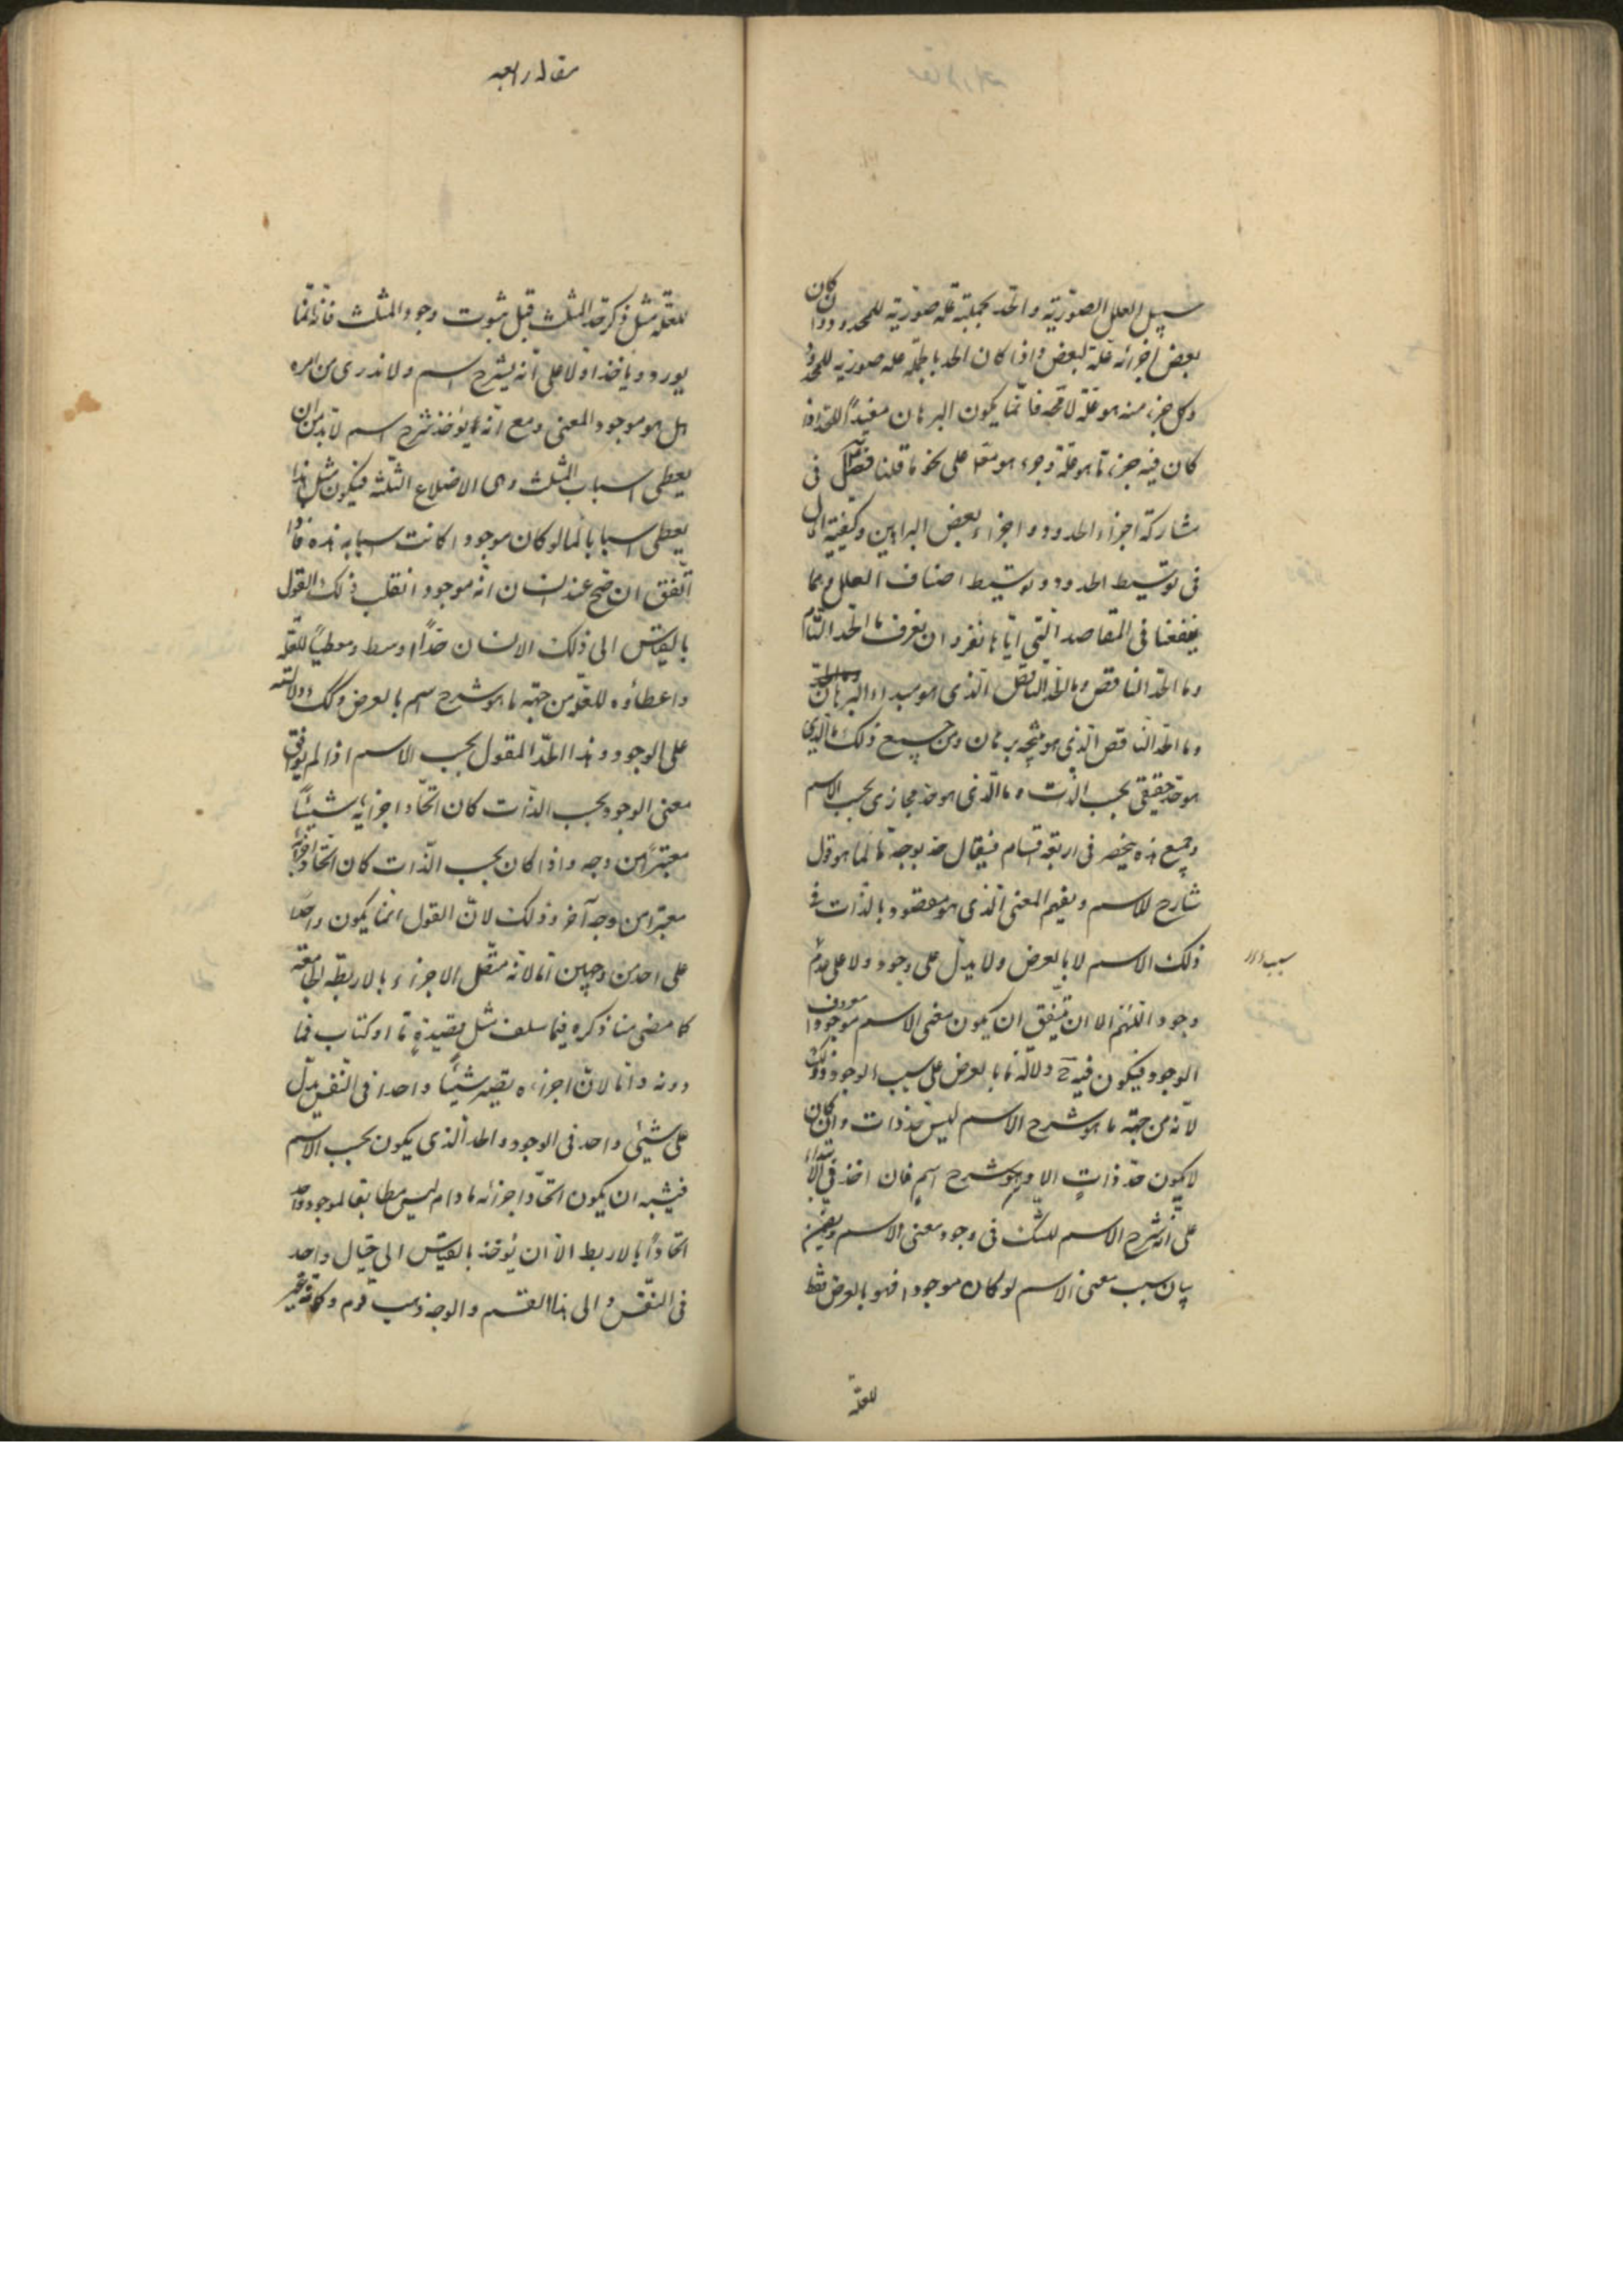 سبيل العلل الصورية والحد بجملته علة صورية للمحدود وان كان
بعض اجزائه علة لبعض واذا كان الحد بالجملة علة صورية للمحدود
وكل جزء منه هو علة لا محة فانما يكون البرهان مفيداً للحد اذا
كان فيه جزء ما هو علة وجزء هو معلول على نحو ما قلنا فصل فى
مشاركة اجزاء الحدود واجزاء بعض البراهين وكيفية الحال
فى توسيط الحدود وتوسيط اصناف العلل ومما
ينفعنا فى المقاصد التى اياها نغزو ان نعرف ما الحد التام
وما الحد الناقص وما الحد الناقص الذى هو مبداء البرهان
وما الحد الناقص الذى هو نتيجة برهان ومن جميع ذلك ما الذى
هو حد حقيقى بحسب الذات وما الذى هو حد مجازى بحسب الاسم
وجميع هذه ينحصر فى اربعة اقسام فيقال حد بوجه ما لما هو قول
شارح للاسم ويفهم المعنى الذى هو مقصود بالذات فى
ذلك الاسم لا بالعرض ولا يدل على وجود ولا على عدم
وجود اللهم الا ان يتفق ان يكون معنى الاسم موجودا معروف
الوجود فيكون فيه ح دلالة ما بالعرض على سبب الوجود وذلك
لانه من جهة ما هو شرح الاسم ليس حد ذات وان كان
لا يكون حد ذاتٍ الا وهو شرح اسم فان اخذ فى الابتداء
على انه شرح الاسم للشك فى وجود معنى الاسم وتضمن
بيان سبب معنى الاسم لو كان موجودا فهو بالعرض معط
للعلة
مقاله رابعه
للعلة مثل ذكر حد المثلث قبل ثبوت وجود المثلث فانه انما
يورد ويأخذ اولا على انه يشرح اسم ولا ندرى من امره
هل هو موجود المعنى ومع انه يؤخذ شرح اسم لا بد من ان
يعطى اسباب المثلث وهى الاضلاع الثلثة فيكون مثل هذا
يعطى اسبابا لما لو كان موجودا كانت اسبابه هذه فاذا
اتفق ان صح عند انسان انه موجود انقلب ذلك القول
بالقياس الى ذلك الانسان حداً اوسط ومعطياً للعلة
واعطاؤه للعلة من جهة ما هو شرح اسم بالعرض وكذلك دلالته
على الوجود وهذا الحد المقول بحسب الاسم اذا لم يوافق
معنى الوجود بحسب الذات كان اتحاد اجزائه شيئاً
معتبراً من وجه واذا كان بحسب الذات كان اتحاد اجزائه
معتبرا من وجه آخر وذلك لان القول انما يكون واحدا
على احد من وجهين اما لانه متصل الاجزاء بالاربطة الجامعة
كما مضى منا ذكره فيما سلف مثل قصيدةٍ ما او كتاب فما
دونه واما لان اجزاءه يصير شيئاً واحدا فى النفس يدل
على شيئى واحد فى الوجود والحد الذى يكون بحسب الاسم
فيشبه ان يكون اتحاد اجزائه ما دام ليس مطابقا لموجود واحد
اتحاداً بالاربط الا ان يؤخذ بالقياس الى خيال واحد
فى النفس والى هذا القسم والوجه ذهب قوم